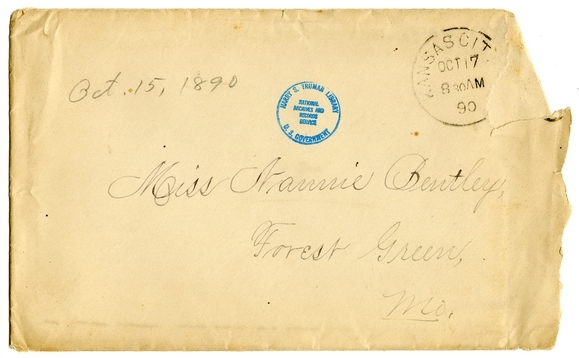 Oct. 15, 1890
HARRY S. TRUMAN LIBRARY
NATIONAL
ARCHIVES AND
RECORDS
SERVICE
U.S. GOVERNMENT
KANSAS CIT
OCT 17
8 30 AM
90
Miss Nannie Bentley,
Forest Green,
Mo.